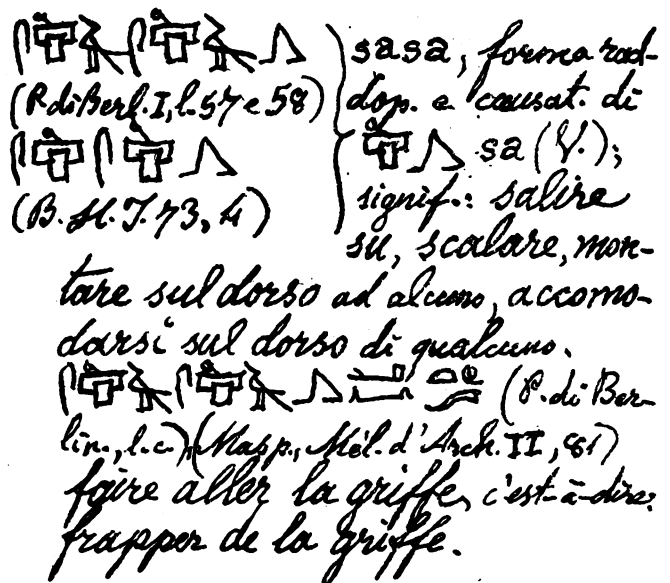 sasa, forma rad-
(P. di Berl. I, l. 57 e 58) dop. e causat. di
sa (V.);
(B. H. J. 73, 4) signif.: salire
su, scalare, mon-
tare sul dorso ad alcuno, accomo-
darsi sul dorso di qualcuno.
(P. di Ber-
lin., l.c.) (Masp., Mél. d'Arch. II, 81)
faire aller la griffe, c'est-à-dire:
frapper de la griffe.